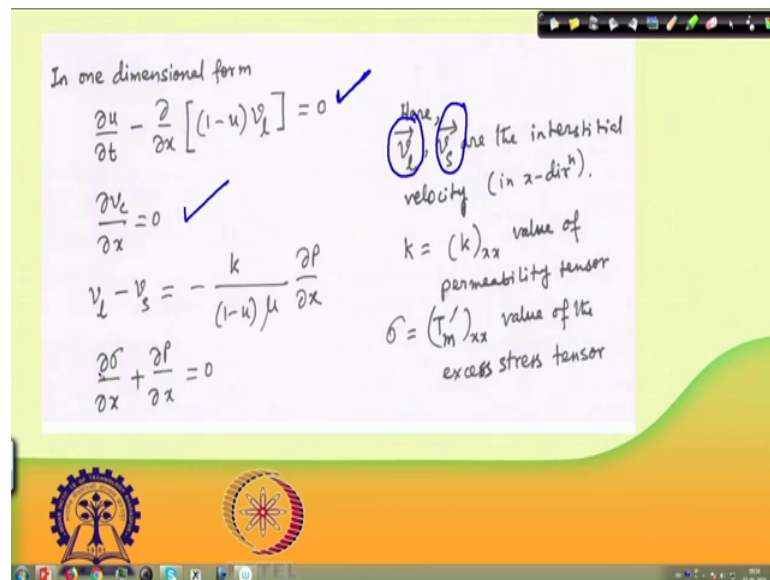 In one dimensional form
∂u/∂t - ∂/∂x [(1-u) v_l] = 0
∂v_c/∂x = 0
v_l - v_s = - k/((1-u) μ) ∂P/∂x
∂σ/∂x + ∂P/∂x = 0
Here,
v_l, v_s are the interstitial
velocity (in x-dirⁿ).
k = (k)_xx value of
permeability tensor
σ = (T_m')_xx value of the
excess stress tensor